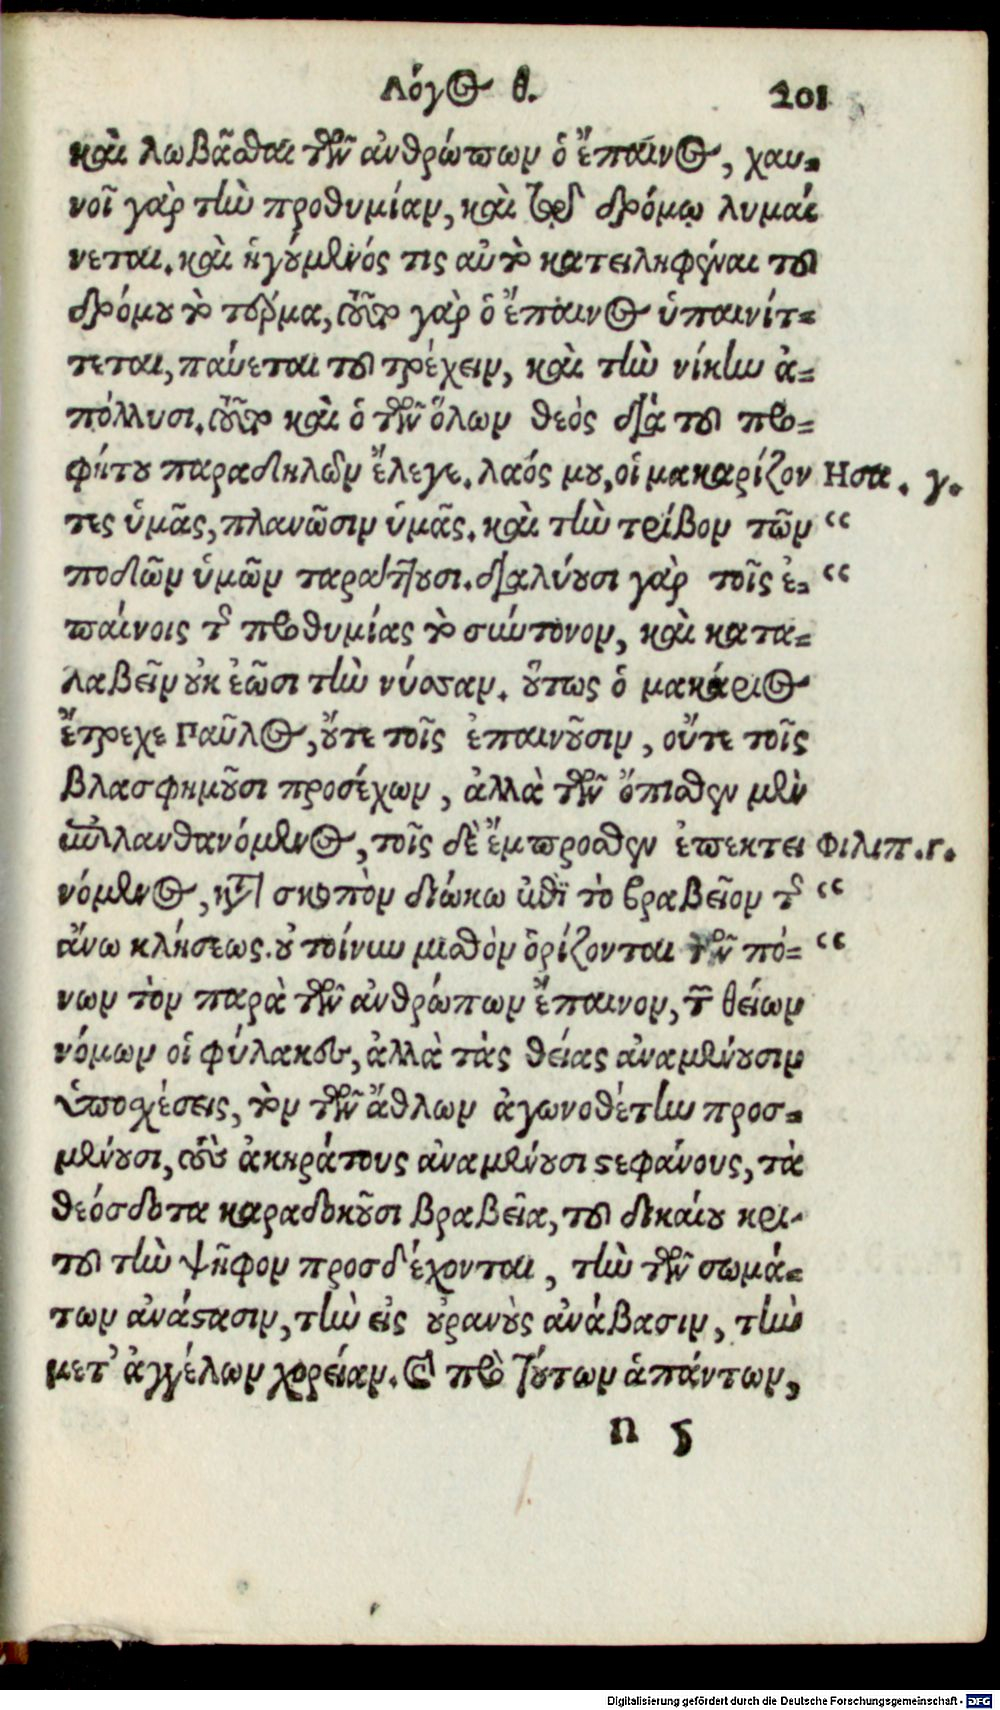 Λόγος θ. 201
καὶ λωβᾶσθαι τῶν ἀνθρώπων ὁ ἔπαινος, χαυ-
νοῖ γὰρ τὴν προθυμίαν, καὶ τῷ δρόμῳ λυμαί
νεται. καὶ ἡγούμενός τις αὐτὸ κατειληφέναι τοῦ
δρόμου τὸ τέρμα, τοῦτο γὰρ ὁ ἔπαινος ὑπαινίτ-
τεται, παύεται τοῦ τρέχειν, καὶ τὴν νίκην ἀ-
πόλλυσι. τοῦτο καὶ ὁ τῶν ὅλων θεὸς διὰ τοῦ προ-
φήτου παραδηλῶν ἔλεγε. λαός μου, οἱ μακαρίζον Ησα. γ.
τες ὑμᾶς, πλανῶσιν ὑμᾶς. καὶ τὴν τρίβον τῶν “
ποδῶν ὑμῶν ταράττουσι. διαλύουσι γὰρ τοῖς ἐ- “
παίνοις τῆς προθυμίας τὸ σύντονον, καὶ κατα-
λαβεῖν οὐκ ἐῶσι τὴν νύσσαν. οὕτως ὁ μακάριος
ἔτρεχε Παῦλος, οὔτε τοῖς ἐπαινοῦσιν, οὔτε τοῖς
βλασφημοῦσι προσέχων, ἀλλὰ τῶν ὄπισθεν μὲν
ἐπιλανθανόμενος, τοῖς δὲ ἔμπροσθεν ἐπεκτει Φιλιπ. γ.
νόμενος, κατὰ σκοπὸν διώκω ἐπὶ τὸ βραβεῖον τῆς “
ἄνω κλήσεως. οὐ τοίνυν μισθὸν ὁρίζονται τῶν πό- “
νων τὸν παρὰ τῶν ἀνθρώπων ἔπαινον, τῶν θείων
νόμων οἱ φύλακες, ἀλλὰ τὰς θείας ἀναμένουσιν
ὑποσχέσεις, τὸν τῶν ἄθλων ἀγωνοθέτην προσ-
μένουσι, τοὺς ἀκηράτους ἀναμένουσι στεφάνους, τὰ
θεόσδοτα καραδοκοῦσι βραβεῖα, τοῦ δικαίου κρι-
τοῦ τὴν ψῆφον προσδέχονται, τὴν τῶν σωμά-
των ἀνάστασιν, τὴν εἰς οὐρανοὺς ἀνάβασιν, τὴν
μετ’ ἀγγέλων χορείαν. καὶ πρὸ τούτων ἁπάντων,
n 5
Digitalisierung gefördert durch die Deutsche Forschungsgemeinschaft - DFG